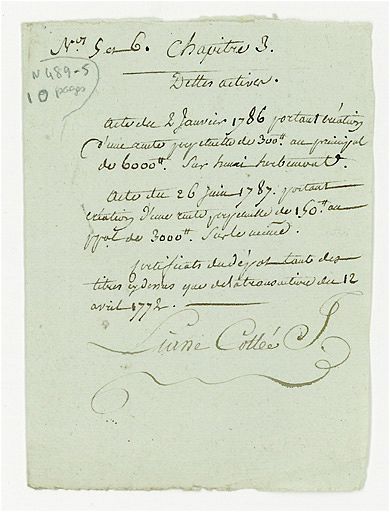 Nos 5 et 6. Chapitre 3.
N 489-5
10 pages
Dettes actives.
Acte du 2 Janvier 1786 portant création
d'une rente perpetuelle de 300tt au principal
de 6000tt. Sur henri
Acte du 26 Juin 1787. portant
création d'une rente perpetuelle de 150tt au
ppal de 3000tt. Sur le même.
Certificats du dépot tant des
titres cy dessus que de la transaction du 12
avril 1772.
Pierre Collée